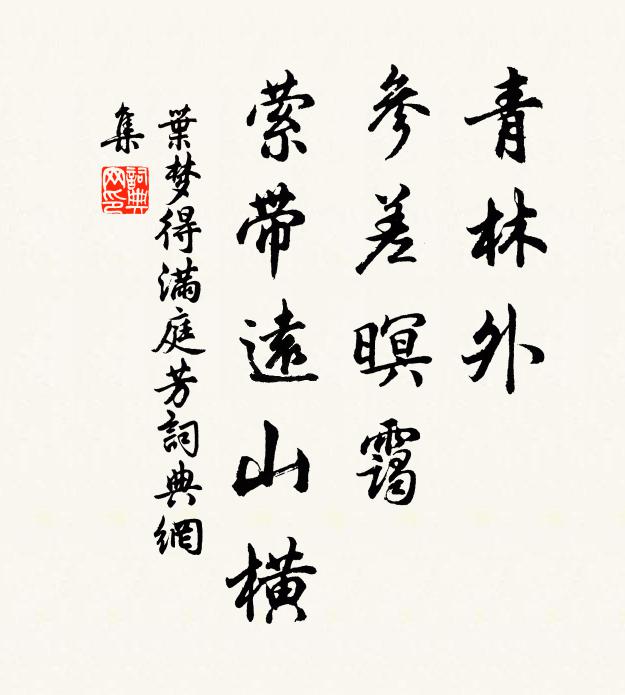 青林外
參差暝靄
縈帶遠山橫
葉梦得滿庭芳詞典網
集
詞典
网印